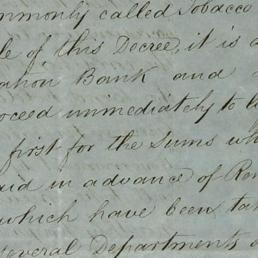 mmonly called Tobacco
le of this Decree, it is a
ation Bank and
oceed immediately to
first for the Sums wh
aid in advance of Ren
which have been ta
several Departments